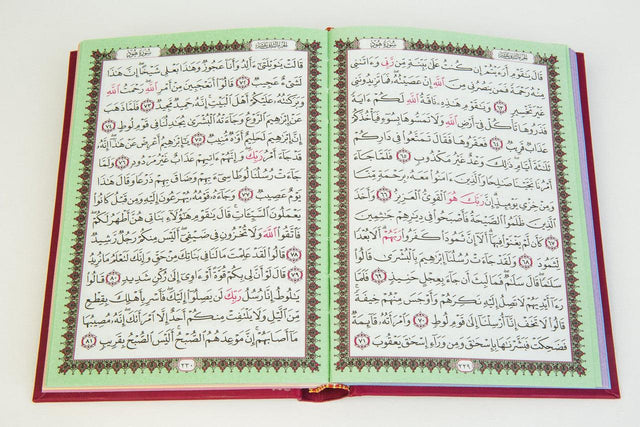 الجزء الثاني عشر سورة هود
قَالَ يَٰقَوْمِ أَرَءَيْتُمْ إِن كُنتُ عَلَىٰ بَيِّنَةٍ مِّن رَّبِّي وَءَاتَىٰنِي
مِنْهُ رَحْمَةً فَمَن يَنصُرُنِي مِنَ ٱللَّهِ إِنْ عَصَيْتُهُۥ فَمَا تَزِيدُونَنِي
غَيْرَ تَخْسِيرٍ ٦٣ وَيَٰقَوْمِ هَٰذِهِۦ نَاقَةُ ٱللَّهِ لَكُمْ ءَايَةً
فَذَرُوهَا تَأْكُلْ فِيٓ أَرْضِ ٱللَّهِ وَلَا تَمَسُّوهَا بِسُوٓءٍ فَيَأْخُذَكُمْ
عَذَابٌ قَرِيبٌ ٦٤ فَعَقَرُوهَا فَقَالَ تَمَتَّعُوا۟ فِي دَارِكُمْ
ثَلَٰثَةَ أَيَّامٍ ذَٰلِكَ وَعْدٌ غَيْرُ مَكْذُوبٍ ٦٥ فَلَمَّا جَآءَ
أَمْرُنَا نَجَّيْنَا صَٰلِحًا وَٱلَّذِينَ ءَامَنُوا۟ مَعَهُۥ بِرَحْمَةٍ مِّنَّا
وَمِنْ خِزْيِ يَوْمِئِذٍ إِنَّ رَبَّكَ هُوَ ٱلْقَوِيُّ ٱلْعَزِيزُ ٦٦ وَأَخَذَ
ٱلَّذِينَ ظَلَمُوا۟ ٱلصَّيْحَةُ فَأَصْبَحُوا۟ فِي دِيَٰرِهِمْ جَٰثِمِينَ
٦٧ كَأَن لَّمْ يَغْنَوْا۟ فِيهَآ أَلَآ إِنَّ ثَمُودَا۟ كَفَرُوا۟ رَبَّهُمْ أَلَا بُعْدًا
لِّثَمُودَ ٦٨ وَلَقَدْ جَآءَتْ رُسُلُنَآ إِبْرَٰهِيمَ بِٱلْبُشْرَىٰ قَالُوا۟
سَلَٰمًا قَالَ سَلَٰمٌ فَمَا لَبِثَ أَن جَآءَ بِعِجْلٍ حَنِيذٍ ٦٩ فَلَمَّا
رَءَآ أَيْدِيَهُمْ لَا تَصِلُ إِلَيْهِ نَكِرَهُمْ وَأَوْجَسَ مِنْهُمْ خِيفَةً
قَالُوا۟ لَا تَخَفْ إِنَّآ أُرْسِلْنَآ إِلَىٰ قَوْمِ لُوطٍ ٧٠ وَٱمْرَأَتُهُۥ قَآئِمَةٌ
فَضَحِكَتْ فَبَشَّرْنَٰهَا بِإِسْحَٰقَ وَمِن وَرَآءِ إِسْحَٰقَ يَعْقُوبَ ٧١
٢٢٩
الجزء الثاني عشر سورة هود
قَالَتْ يَٰوَيْلَتَىٰٓ ءَأَلِدُ وَأَنَا۠ عَجُوزٌ وَهَٰذَا بَعْلِي شَيْخًا إِنَّ هَٰذَا
لَشَيْءٌ عَجِيبٌ ٧٢ قَالُوٓا۟ أَتَعْجَبِينَ مِنْ أَمْرِ ٱللَّهِ رَحْمَتُ ٱللَّهِ
وَبَرَكَٰتُهُۥ عَلَيْكُمْ أَهْلَ ٱلْبَيْتِ إِنَّهُۥ حَمِيدٌ مَّجِيدٌ ٧٣ فَلَمَّا ذَهَبَ
عَنْ إِبْرَٰهِيمَ ٱلرَّوْعُ وَجَآءَتْهُ ٱلْبُشْرَىٰ يُجَٰدِلُنَا فِي قَوْمِ لُوطٍ ٧٤
إِنَّ إِبْرَٰهِيمَ لَحَلِيمٌ أَوَّٰهٌ مُّنِيبٌ ٧٥ يَٰٓإِبْرَٰهِيمُ أَعْرِضْ عَنْ هَٰذَآ إِنَّهُۥ
قَدْ جَآءَ أَمْرُ رَبِّكَ وَإِنَّهُمْ ءَاتِيهِمْ عَذَابٌ غَيْرُ مَرْدُودٍ ٧٦ وَلَمَّا
جَآءَتْ رُسُلُنَا لُوطًا سِيٓءَ بِهِمْ وَضَاقَ بِهِمْ ذَرْعًا وَقَالَ هَٰذَا
يَوْمٌ عَصِيبٌ ٧٧ وَجَآءَهُۥ قَوْمُهُۥ يُهْرَعُونَ إِلَيْهِ وَمِن قَبْلُ كَانُوا۟
يَعْمَلُونَ ٱلسَّيِّـَٔاتِ قَالَ يَٰقَوْمِ هَٰٓؤُلَآءِ بَنَاتِي هُنَّ أَطْهَرُ لَكُمْ
فَٱتَّقُوا۟ ٱللَّهَ وَلَا تُخْزُونِ فِي ضَيْفِيٓ أَلَيْسَ مِنكُمْ رَجُلٌ رَّشِيدٌ
٧٨ قَالُوا۟ لَقَدْ عَلِمْتَ مَا لَنَا فِي بَنَاتِكَ مِنْ حَقٍّ وَإِنَّكَ لَتَعْلَمُ مَا نُرِيدُ
٧٩ قَالَ لَوْ أَنَّ لِي بِكُمْ قُوَّةً أَوْ ءَاوِيٓ إِلَىٰ رُكْنٍ شَدِيدٍ ٨٠ قَالُوا۟
يَٰلُوطُ إِنَّا رُسُلُ رَبِّكَ لَن يَصِلُوٓا۟ إِلَيْكَ فَأَسْرِ بِأَهْلِكَ بِقِطْعٍ
مِّنَ ٱلَّيْلِ وَلَا يَلْتَفِتْ مِنكُمْ أَحَدٌ إِلَّا ٱمْرَأَتَكَ إِنَّهُۥ مُصِيبُهَا
مَآ أَصَابَهُمْ إِنَّ مَوْعِدَهُمُ ٱلصُّبْحُ أَلَيْسَ ٱلصُّبْحُ بِقَرِيبٍ ٨١
٢٣٠